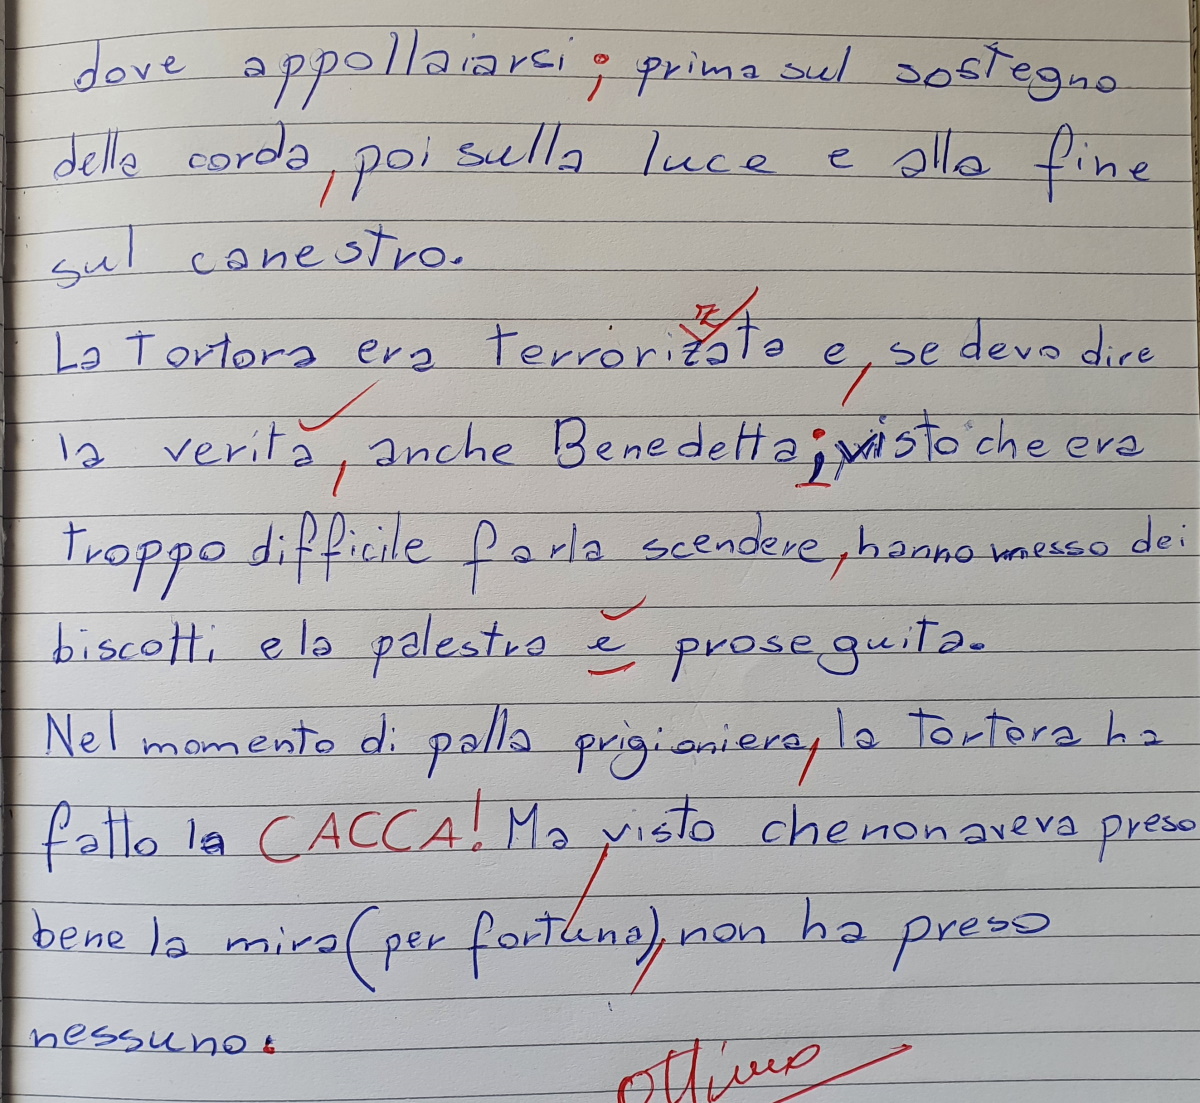 dove appollaiarsi; prima sul sostegno
della corda, poi sulla luce e alla fine
sul canestro.
z
La Tortora era terrorizata e, se devo dire
la verità, anche Benedetta; visto che era
troppo difficile farla scendere, hanno messo dei
biscotti e la palestra è proseguita.
Nel momento di palla prigioniera, la Tortora ha
fatto la CACCA! Ma, visto che non aveva preso
bene la mira (per fortuna), non ha preso
nessuno.
Ottimo